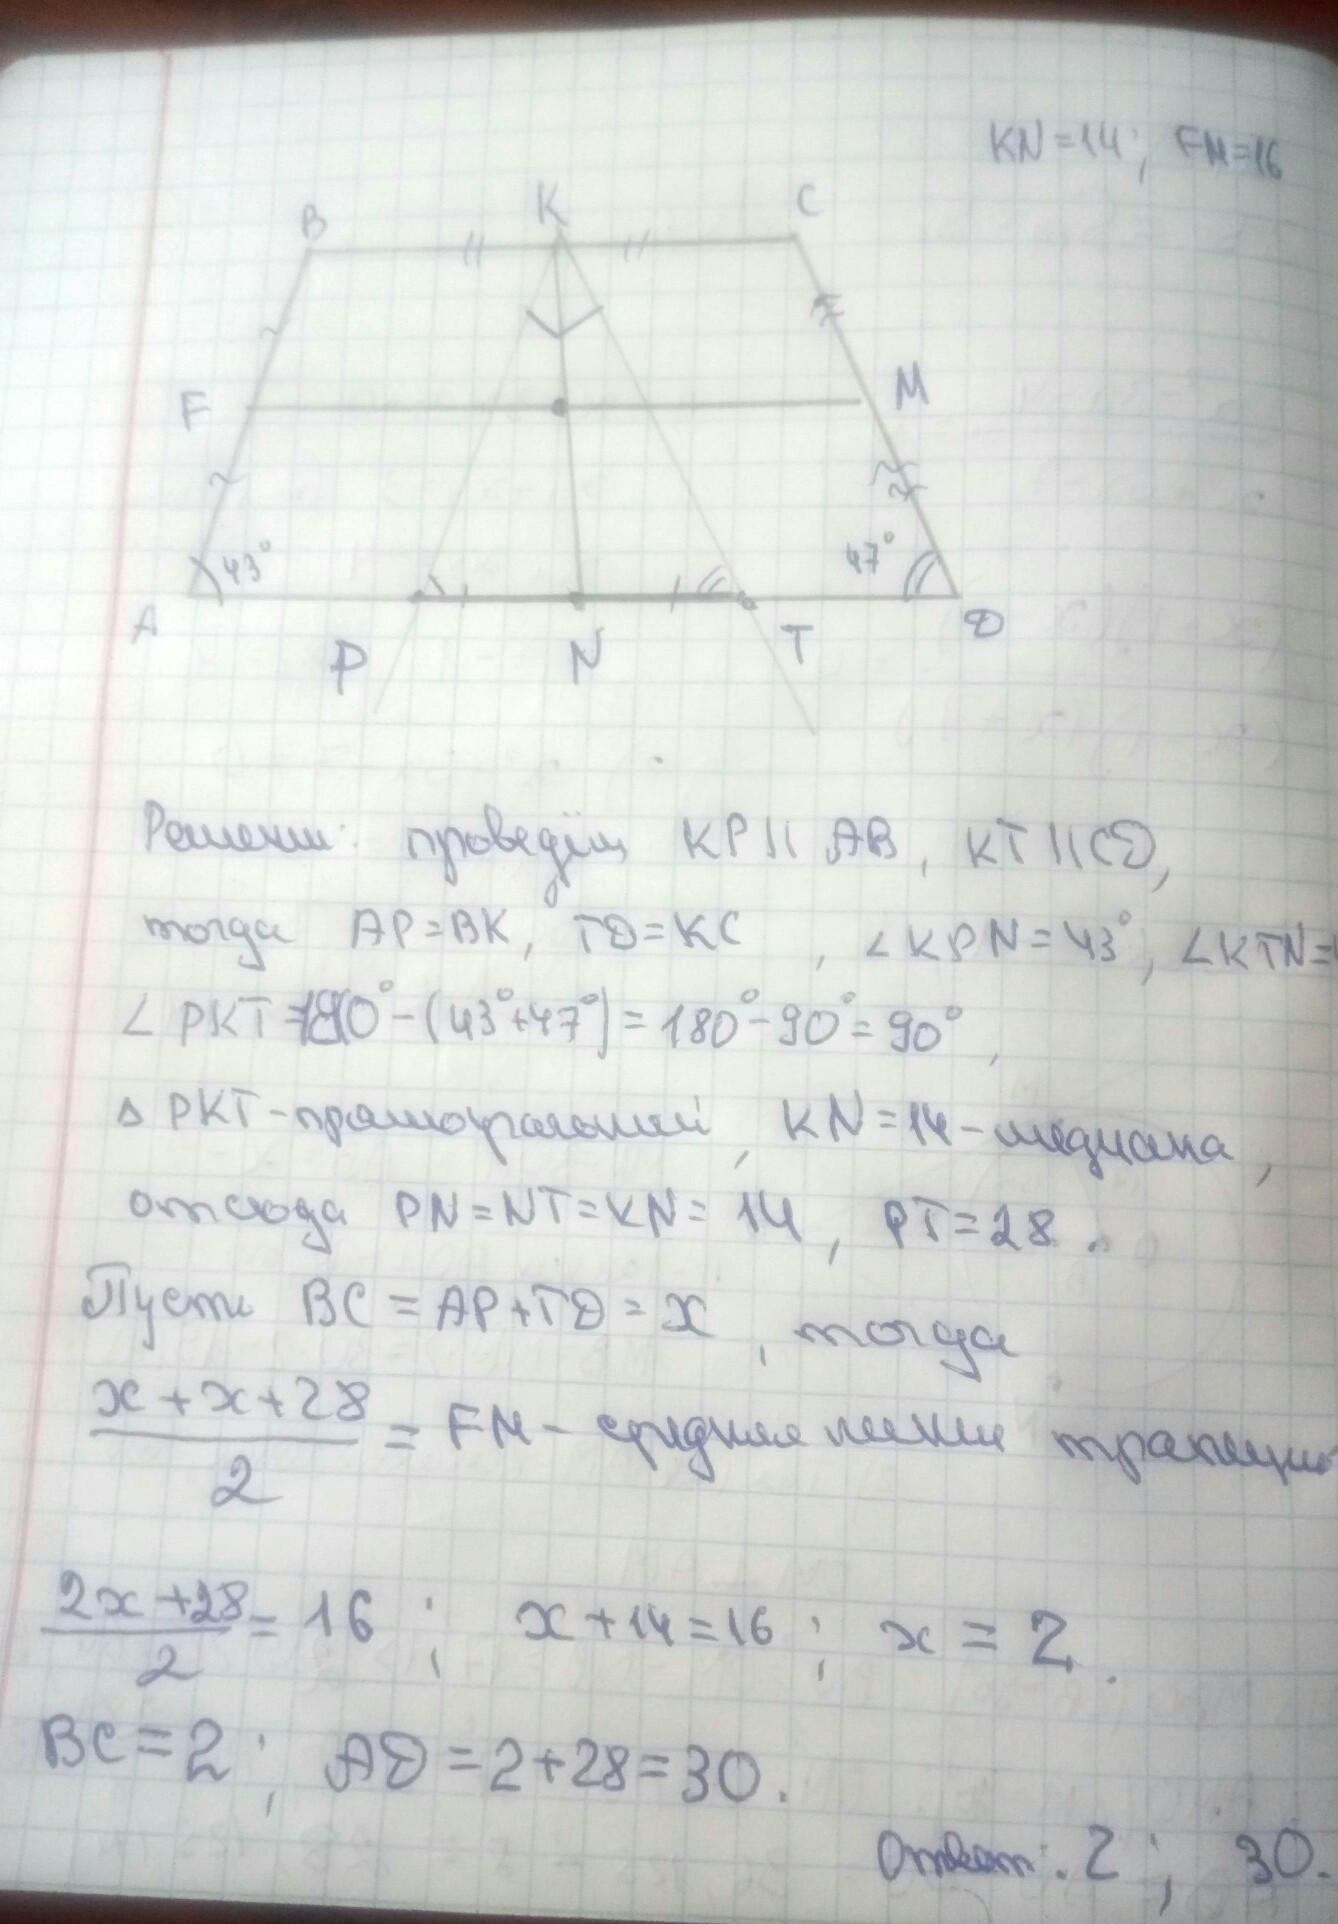 KN=14; FM=16
B K C
F M
43° 47°
A P N T D
Решение: проведём KP || AB, KT || CD,
тогда AP=BK, TD=KC, ∠KPN=43°, ∠KTN=
∠PKT=180°-(43°+47°)=180°-90°=90°,
Δ PKT-прямоугольный, KN=14-медиана,
отсюда PN=NT=KN=14, PT=28.
Пусть BC=AP+TD=x, тогда
x+x+28/2 = FM - средняя линия трапеции
2x+28/2=16; x+14=16; x=2.
BC=2; AD=2+28=30.
Ответ: 2; 30.